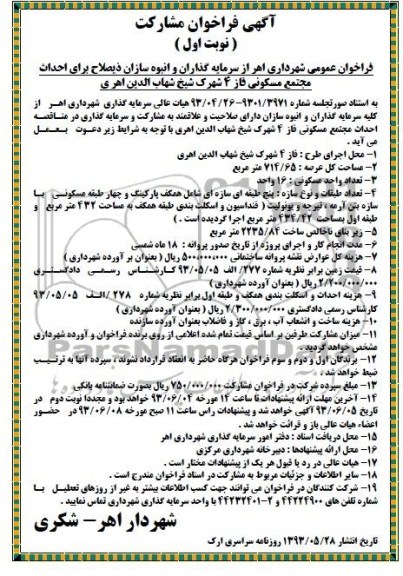 آگهی فراخوان مشارکت
( نوبت اول )
فراخوان عمومی شهرداری اهر از سرمایه گذاران و انبوه سازان ذیصلاح برای احداث
مجتمع مسکونی فاز ۴ شهرک شیخ شهاب الدین اهری
به استناد صورتجلسه شماره ۹۳۰۱/۳۹۷۱-۹۳/۰۴/۲۶ هیات عالی سرمایه گذاری شهرداری اهر از
کلیه سرمایه گذاران و انبوه سازان دارای صلاحیت و علاقمند به مشارکت و سرمایه گذاری در مناقصه
احداث مجتمع مسکونی فاز ۴ شهرک شیخ شهاب الدین اهری با توجه به شرایط زیر دعوت بعمل
می آید .
۱- محل اجرای طرح : فاز ۴ شهرک شیخ شهاب الدین اهری
۲- مساحت کل عرصه : ۷۱۴/۶۵ متر مربع
۳- تعداد واحد مسکونی : ۱۶ واحد
۴- تعداد طبقات و نوع سازه : پنج طبقه ای سازه ای شامل همکف پارکینگ و چهار طبقه مسکونی با
سازه بتن آرمه ، تیرچه و یونولیت ( فنداسیون و اسکلت بندی طبقه همکف به مساحت ۴۳۲ متر مربع و
طبقه اول بمساحت ۴۳۴/۴۲ متر مربع اجرا گردیده است . )
۵- زیر بنای ناخالص ساخت ۲۲۳۵/۸۴ متر مربع
۶- مدت انجام کار و اجرای پروژه از تاریخ صدور پروانه : ۱۸ ماه شمسی
۷- هزینه کل عوارض نقشه پروانه ساختمانی ۵۰۰،۰۰۰،۰۰۰ ریال ( بعنوان بر آورده شهرداری )
۸- قیمت زمین برابر نظریه شماره ۲۷۷/ الف ۹۳/۰۵/۰۵ کارشناس رسمی دادگستری
۲/۲۰۰/۰۰۰/۰۰۰ ریال ( بعنوان آورده شهرداری )
۹- هزینه احداث و اسکلت بندی همکف و طبقه اول برابر نظریه شماره ۲۷۸ /الف ۹۳/۰۵/۰۵
کارشناس رسمی دادگستری ۲/۳۰۰/۰۰۰/۰۰۰ ریال ( بعنوان آورده شهرداری )
۱۰- هزینه ساخت و انشعاب آب ، برق ، گاز و فاضلاب بعنوان آورده سازنده
۱۱- میزان مشارکت طرفین بر اساس قیمت تمام شده اعلامی از روی برنده فراخوان و آورده شهرداری
مشخص خواهد گردید .
۱۲- برندگان اول و دوم و سوم فراخوان هرگاه حاضر به انعقاد قرارداد نشوند ، سپرده آنها به ترتیب
ضبط خواهد شد
۱۳- مبلغ سپرده شرکت در فراخوان مشارکت ۷۵۰/۰۰۰/۰۰۰ ریال بصورت ضمانتنامه بانکی
۱۴- آخرین مهلت ارائه پیشنهادات تا ساعت ۱۴ مورخه ۹۳/۰۶/۰۴ خواهد بود و مجددا نوبت دوم در
تاریخ ۹۳/۰۶/۰۵ آگهی خواهد شد و پیشنهادات راس ساعت ۱۱ صبح مورخه ۹۳/۰۶/۰۸ در حضور
اعضاء هیات عالی باز و قرائت خواهد شد .
۱۵- محل دریافت اسناد : دفتر امور سرمایه گذاری شهرداری اهر
۱۶- محل ارائه پیشنهادها : دبیرخانه شهرداری مرکزی
۱۷- هیات عالی در رد یا قبول هر یک از پیشنهادات مختار است .
۱۸- سایر اطلاعات و جزئیات مربوط به مشارکت در اسناد فراخوان مندرج است .
۱۹- شرکت کنندگان در فراخوان می توانند جهت کسب اطلاعات بیشتر به غیر از روزهای تعطیل با
شماره تلفن های ۴۴۲۲۴۹۰۰ و ۲-۴۴۲۳۲۴۰۱ با واحد سرمایه گذاری شهرداری تماس نمایید .
شهردار اهر- شکری
تاریخ انتشار ۱۳۹۳/۰۵/۲۸ روزنامه سراسری ارک